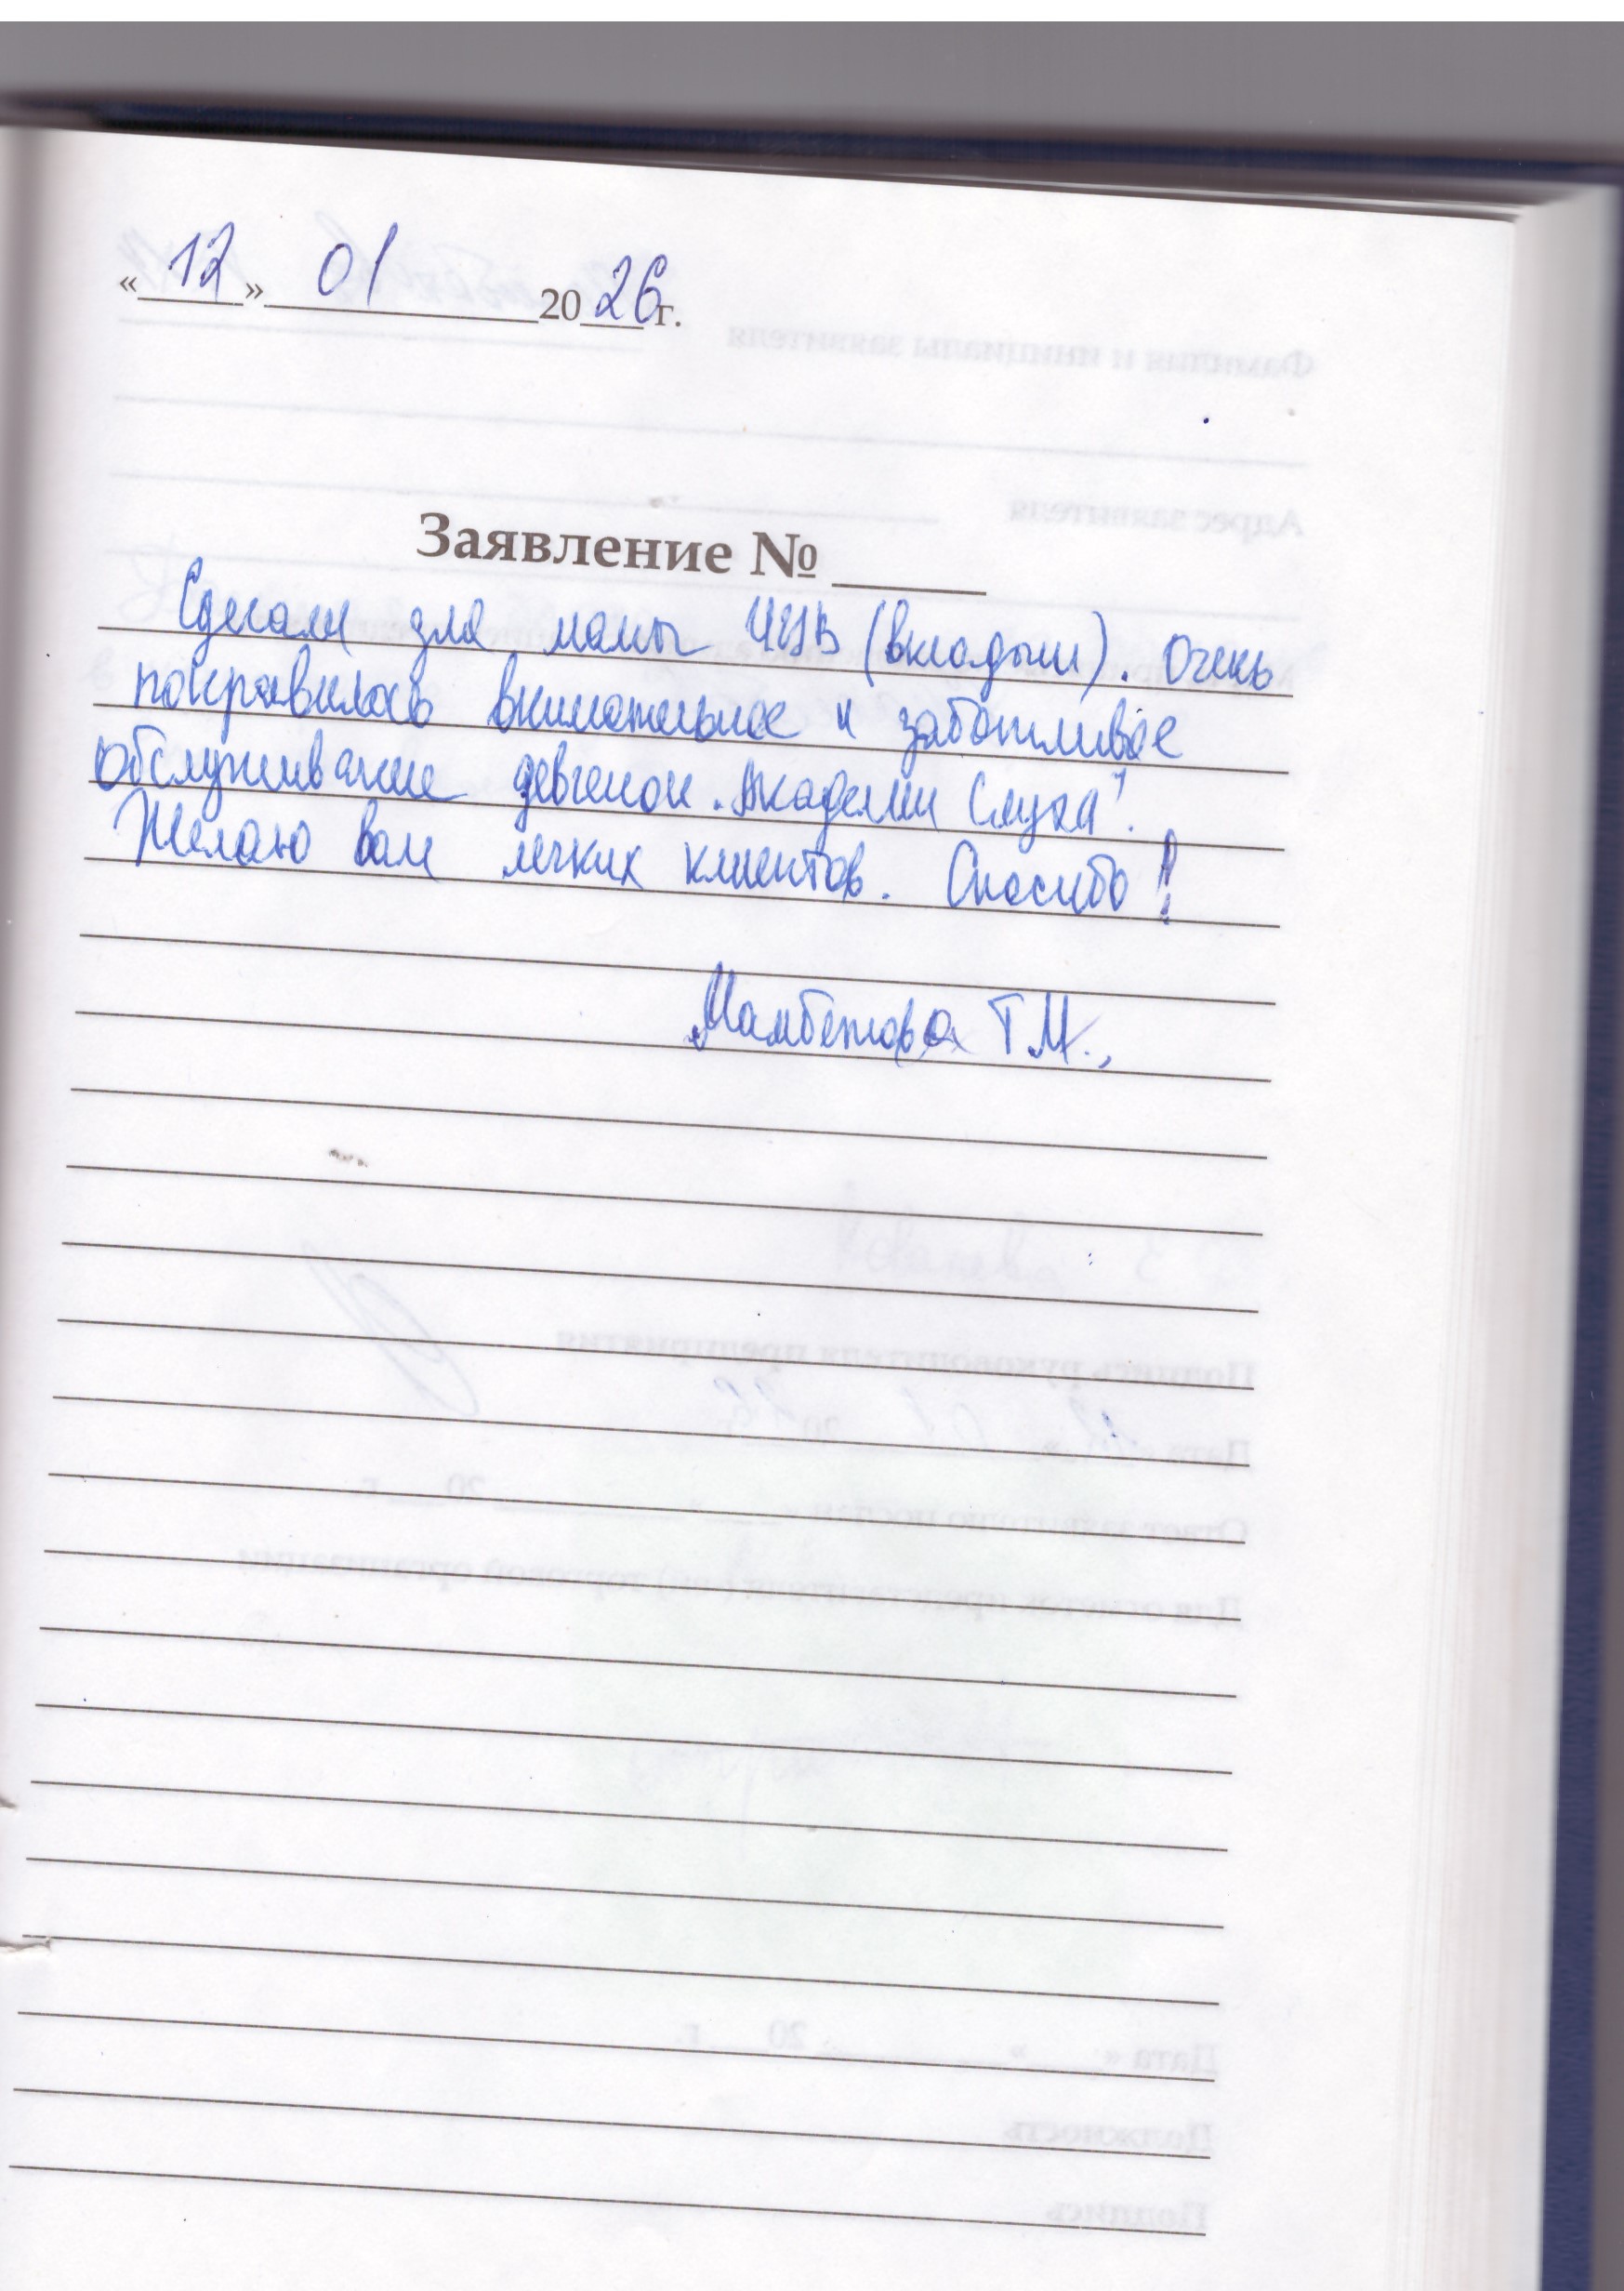 «12» 01 2026г.
Заявление № ____
Сделали для мамы ИУВ (вкладыш). Очень
понравилось внимательное и заботливое
обслуживание девченок "Академии Слуха".
Желаю вам легких клиентов. Спасибо!
Мамбетова Т.М.,